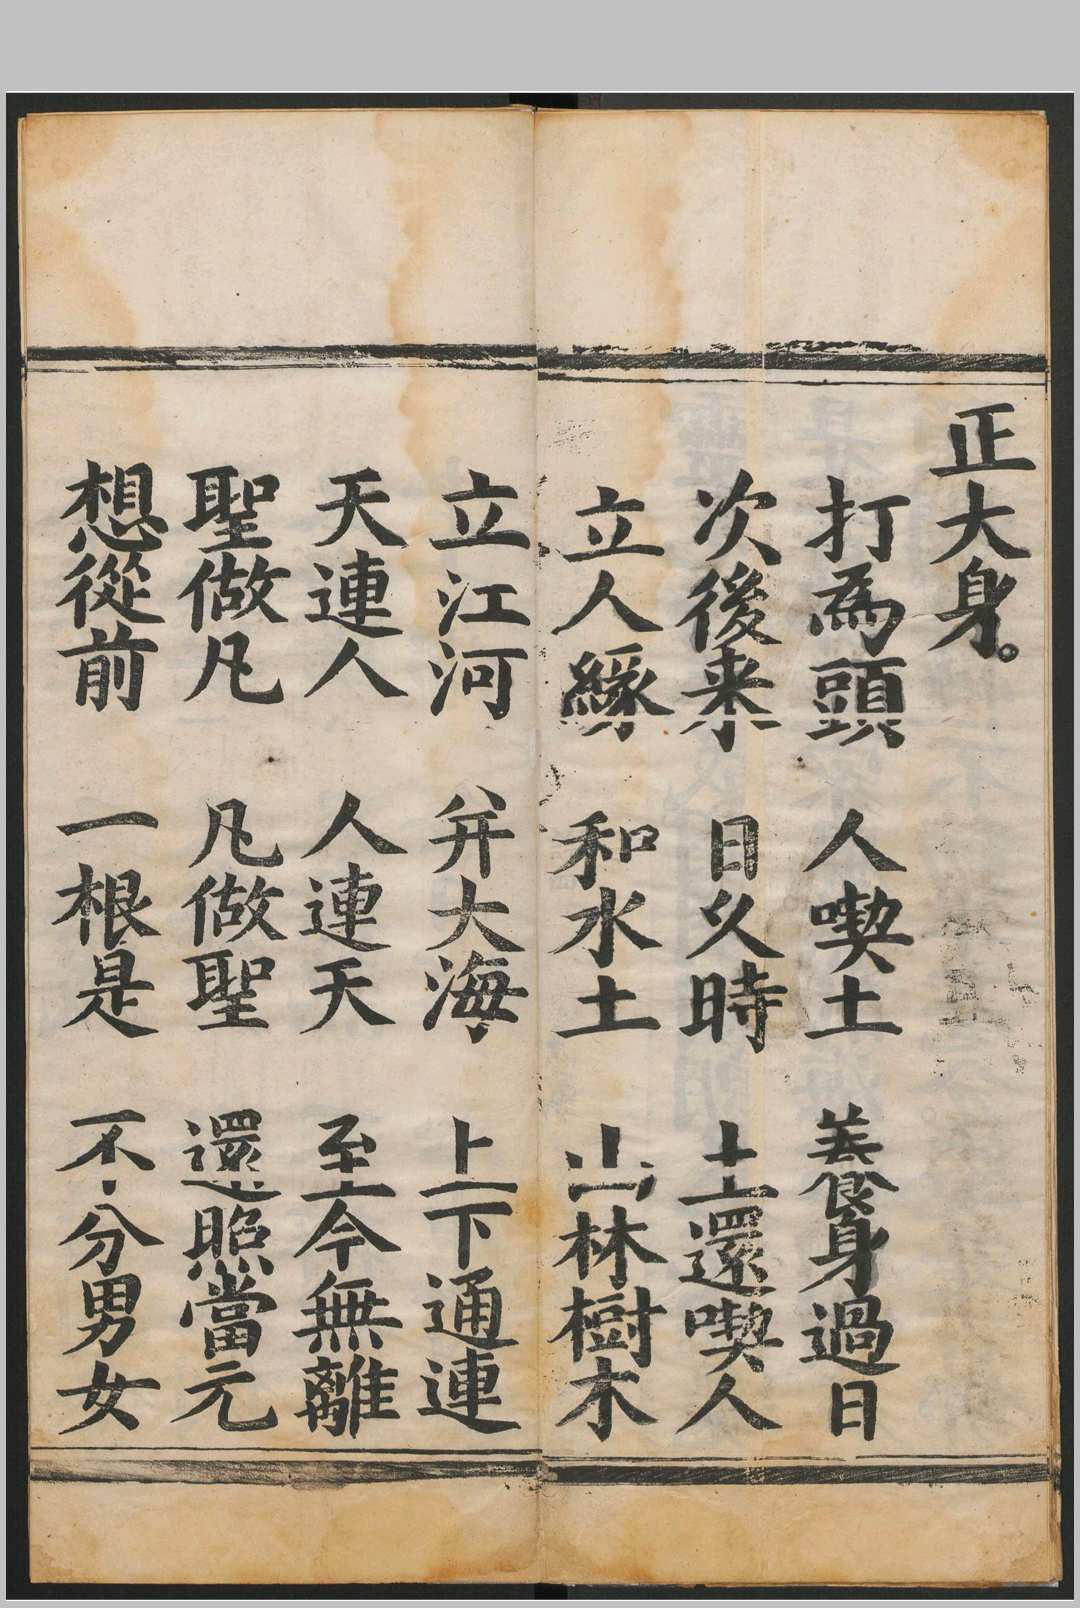 正大身。
打為頭　人喫土　養身過日
次後来　日久時　土還喫人
立人緣　和水土　山林樹木
立江河　并大海　上下通連
天連人　人連天　至今無離
聖做凡　凡做聖　還照當元
想從前　一根是　不分男女